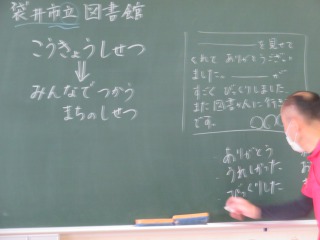 袋井市立図書館
こうきょうしせつ
⇓
みんなでつかう
まちのしせつ
＿＿＿＿を見せて
くれてありがとうござい
ました。＿＿＿が
すごくびっくりしました
また図書かんに行き
です。〇〇
ありがとう
うれしかった
びっくりした